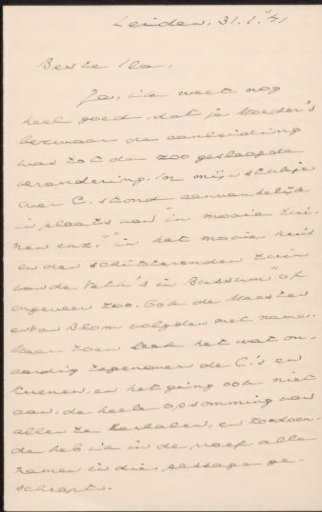 Leiden, 31.1.'41
Beste Ila,
Ja, ik weet nog
heel goed, dat je Moeder's
bezwaar de aanleiding
was tot de zoo geslaagde
verandering. In mijn stukje
over C. stond aanvankelijk
in plaats van "in mooie tui-
nen enz." "in het mooie huis
en den schitterenden tuin
van de Veth's in Bussum" of
ongeveer zoo. Ook de Meester
en van Blom volgden met name.
Maar toen leek het wat on-
aardig tegenover de C.'s en
en het ging ook niet
aan, de heele opsomming van
allen te herhalen, en zoodoen-
de heb ik in de proef alle
namen in die passage ge-
schrapt.